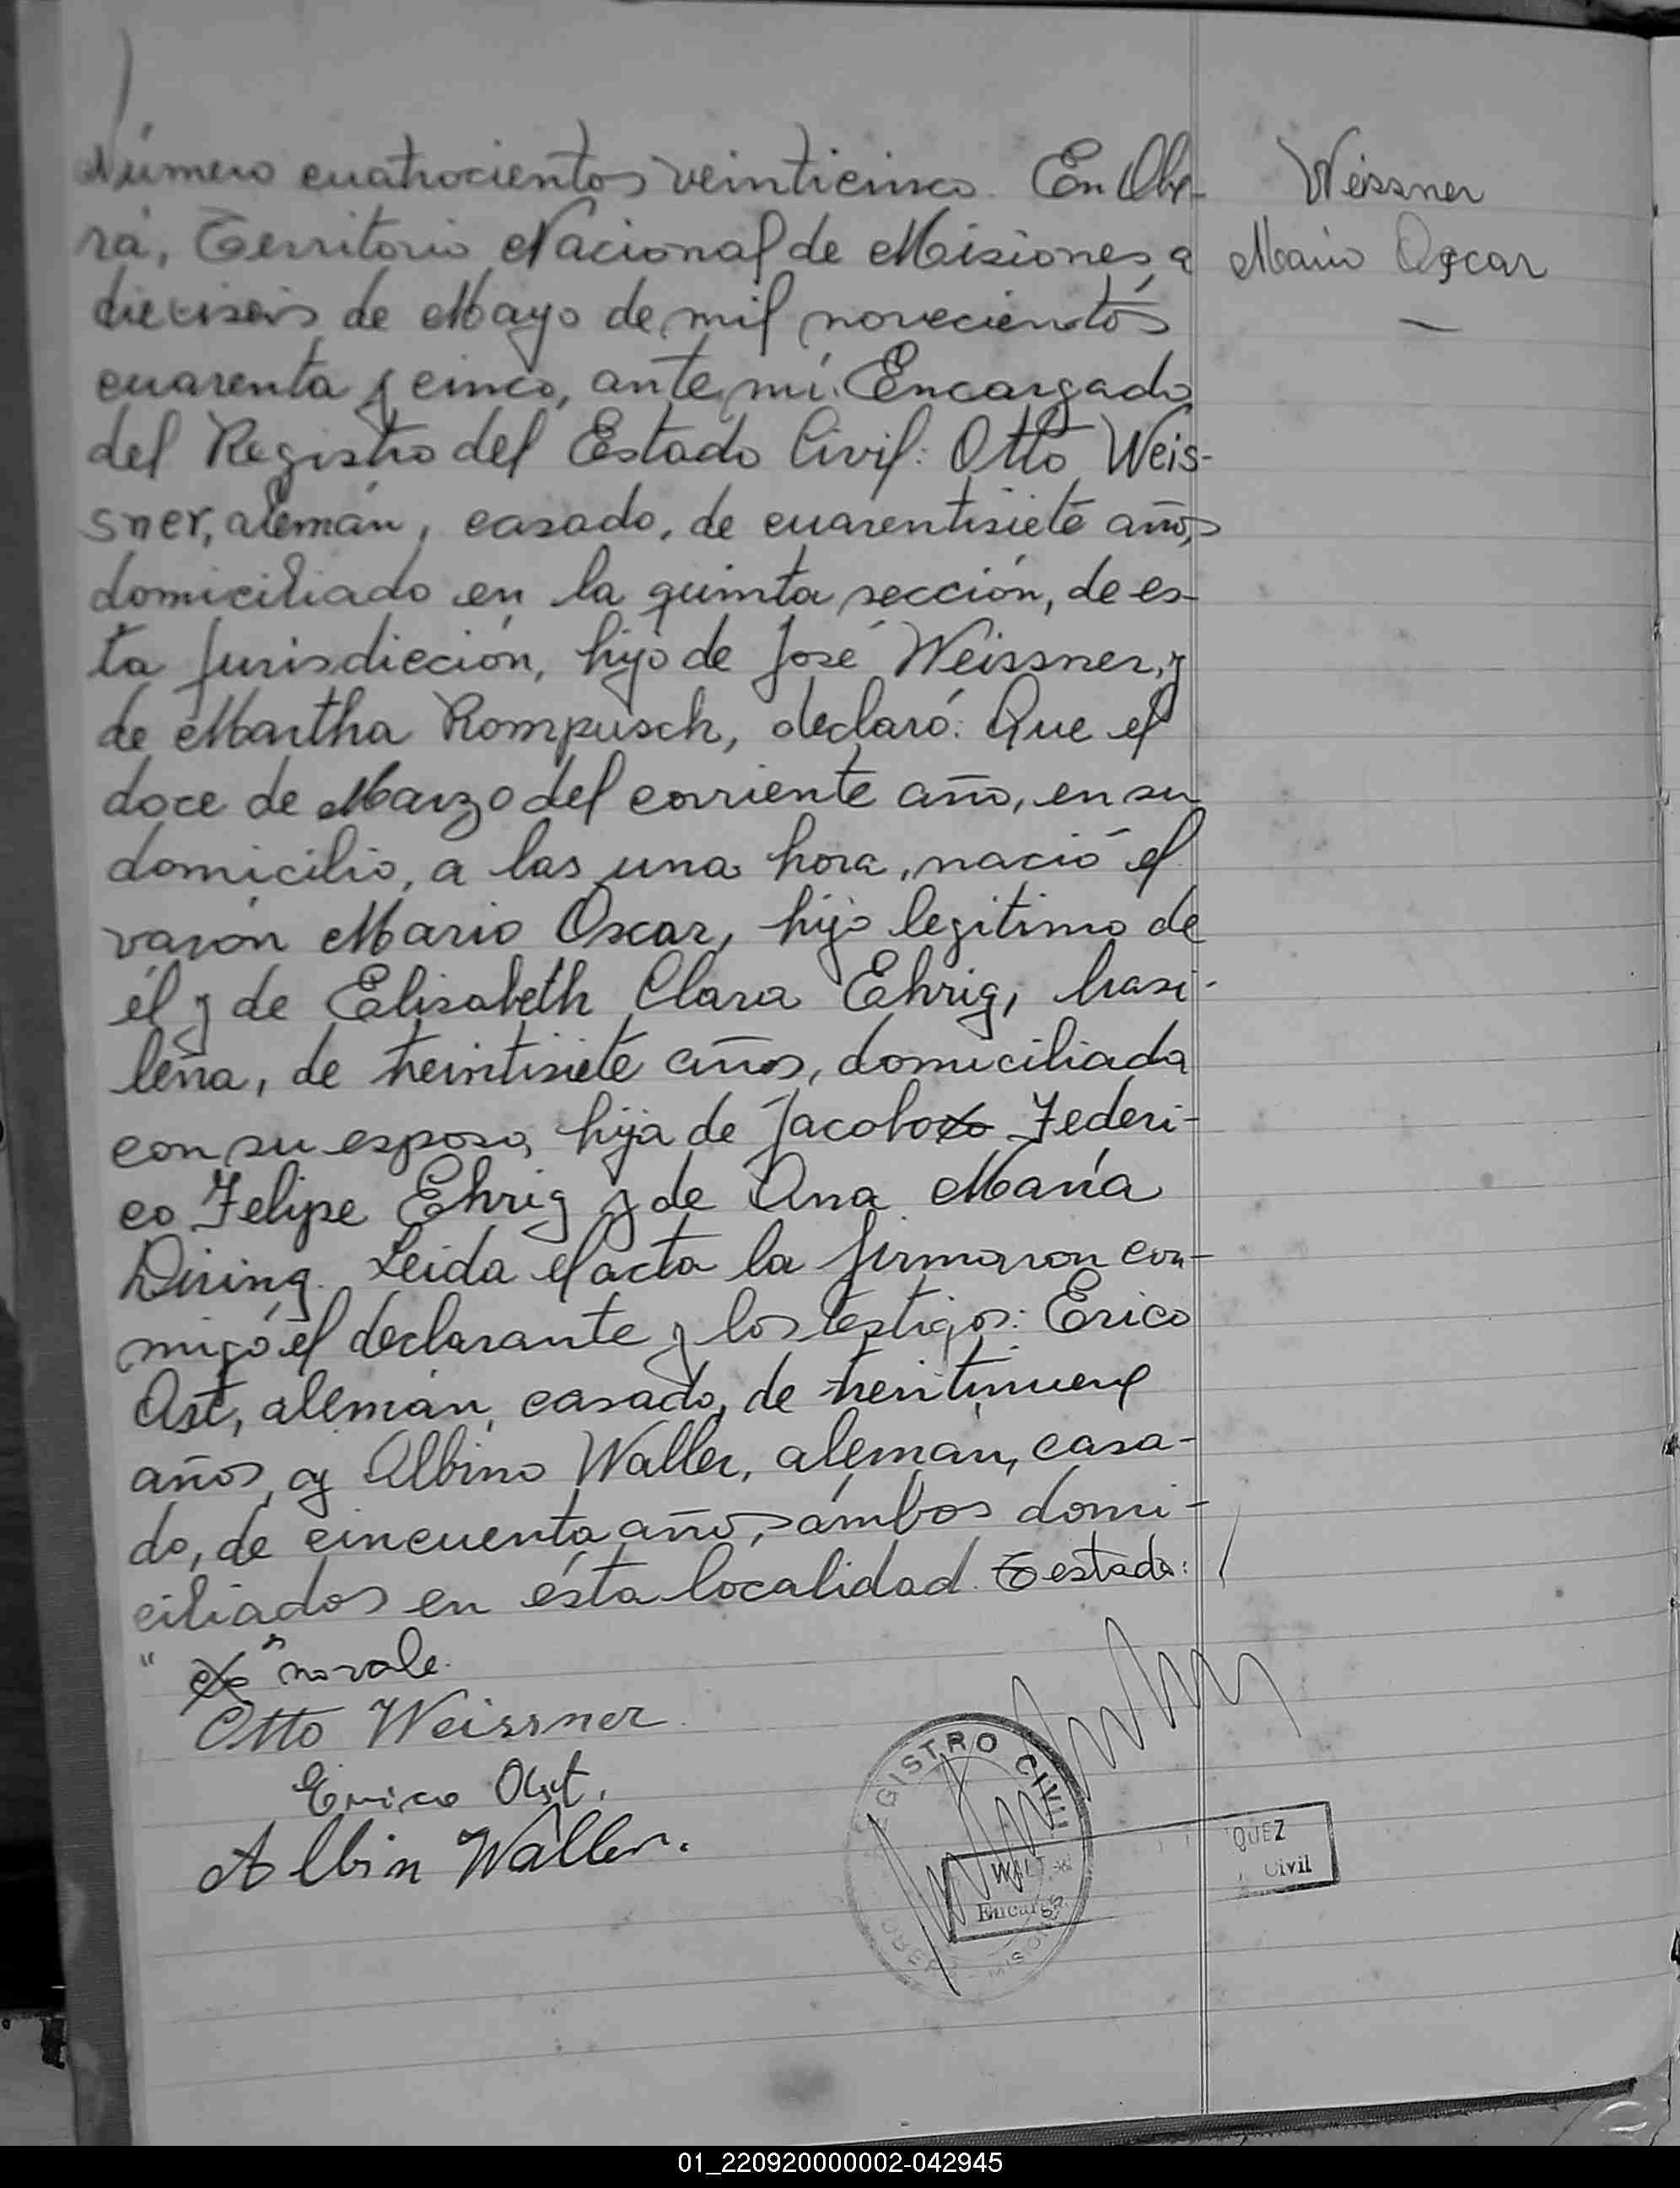 Número cuatrocientos veinticinco. En Obe-
rá, Territorio Nacional de Misiones, a
dieciseis de Mayo de mil novecientos
cuarenta y cinco, ante mí: Encargado
del Registro del Estado Civil: Otto Weis-
sner, alemán, casado, de cuarentisiete años,
domiciliado en la quinta sección, de es-
ta Jurisdicción, hijo de José Weissner, y
de Martha Rompusch, declaró: Que el
doce de Marzo del corriente año, en su
domicilio, a las una hora, nació el
varón Mario Oscar, hijo legitimo de
él y de Elisabeth Clara Ehrig, brasi-
leña, de treintisiete años, domiciliada
con su esposo, hija de Jacobo Federi-
co Felipe Ehrig y de Ana María
Diring. Leida el acta la firmaron con-
migo el declarante y los testigos: Erico
Ast, alemán, casado, de treintinueve
años, y Albino Waller, alemán, casa-
do, de cincuenta años, ámbos domi-
ciliados en ésta localidad. Testado:
" " no vale.
Otto Weissner
Erico Ast.
Albin Waller.
Weissner
Mario Oscar
REGISTRO CIVIL
WALT
Encarg
QUEZ
Civil
01_220920000002-042945